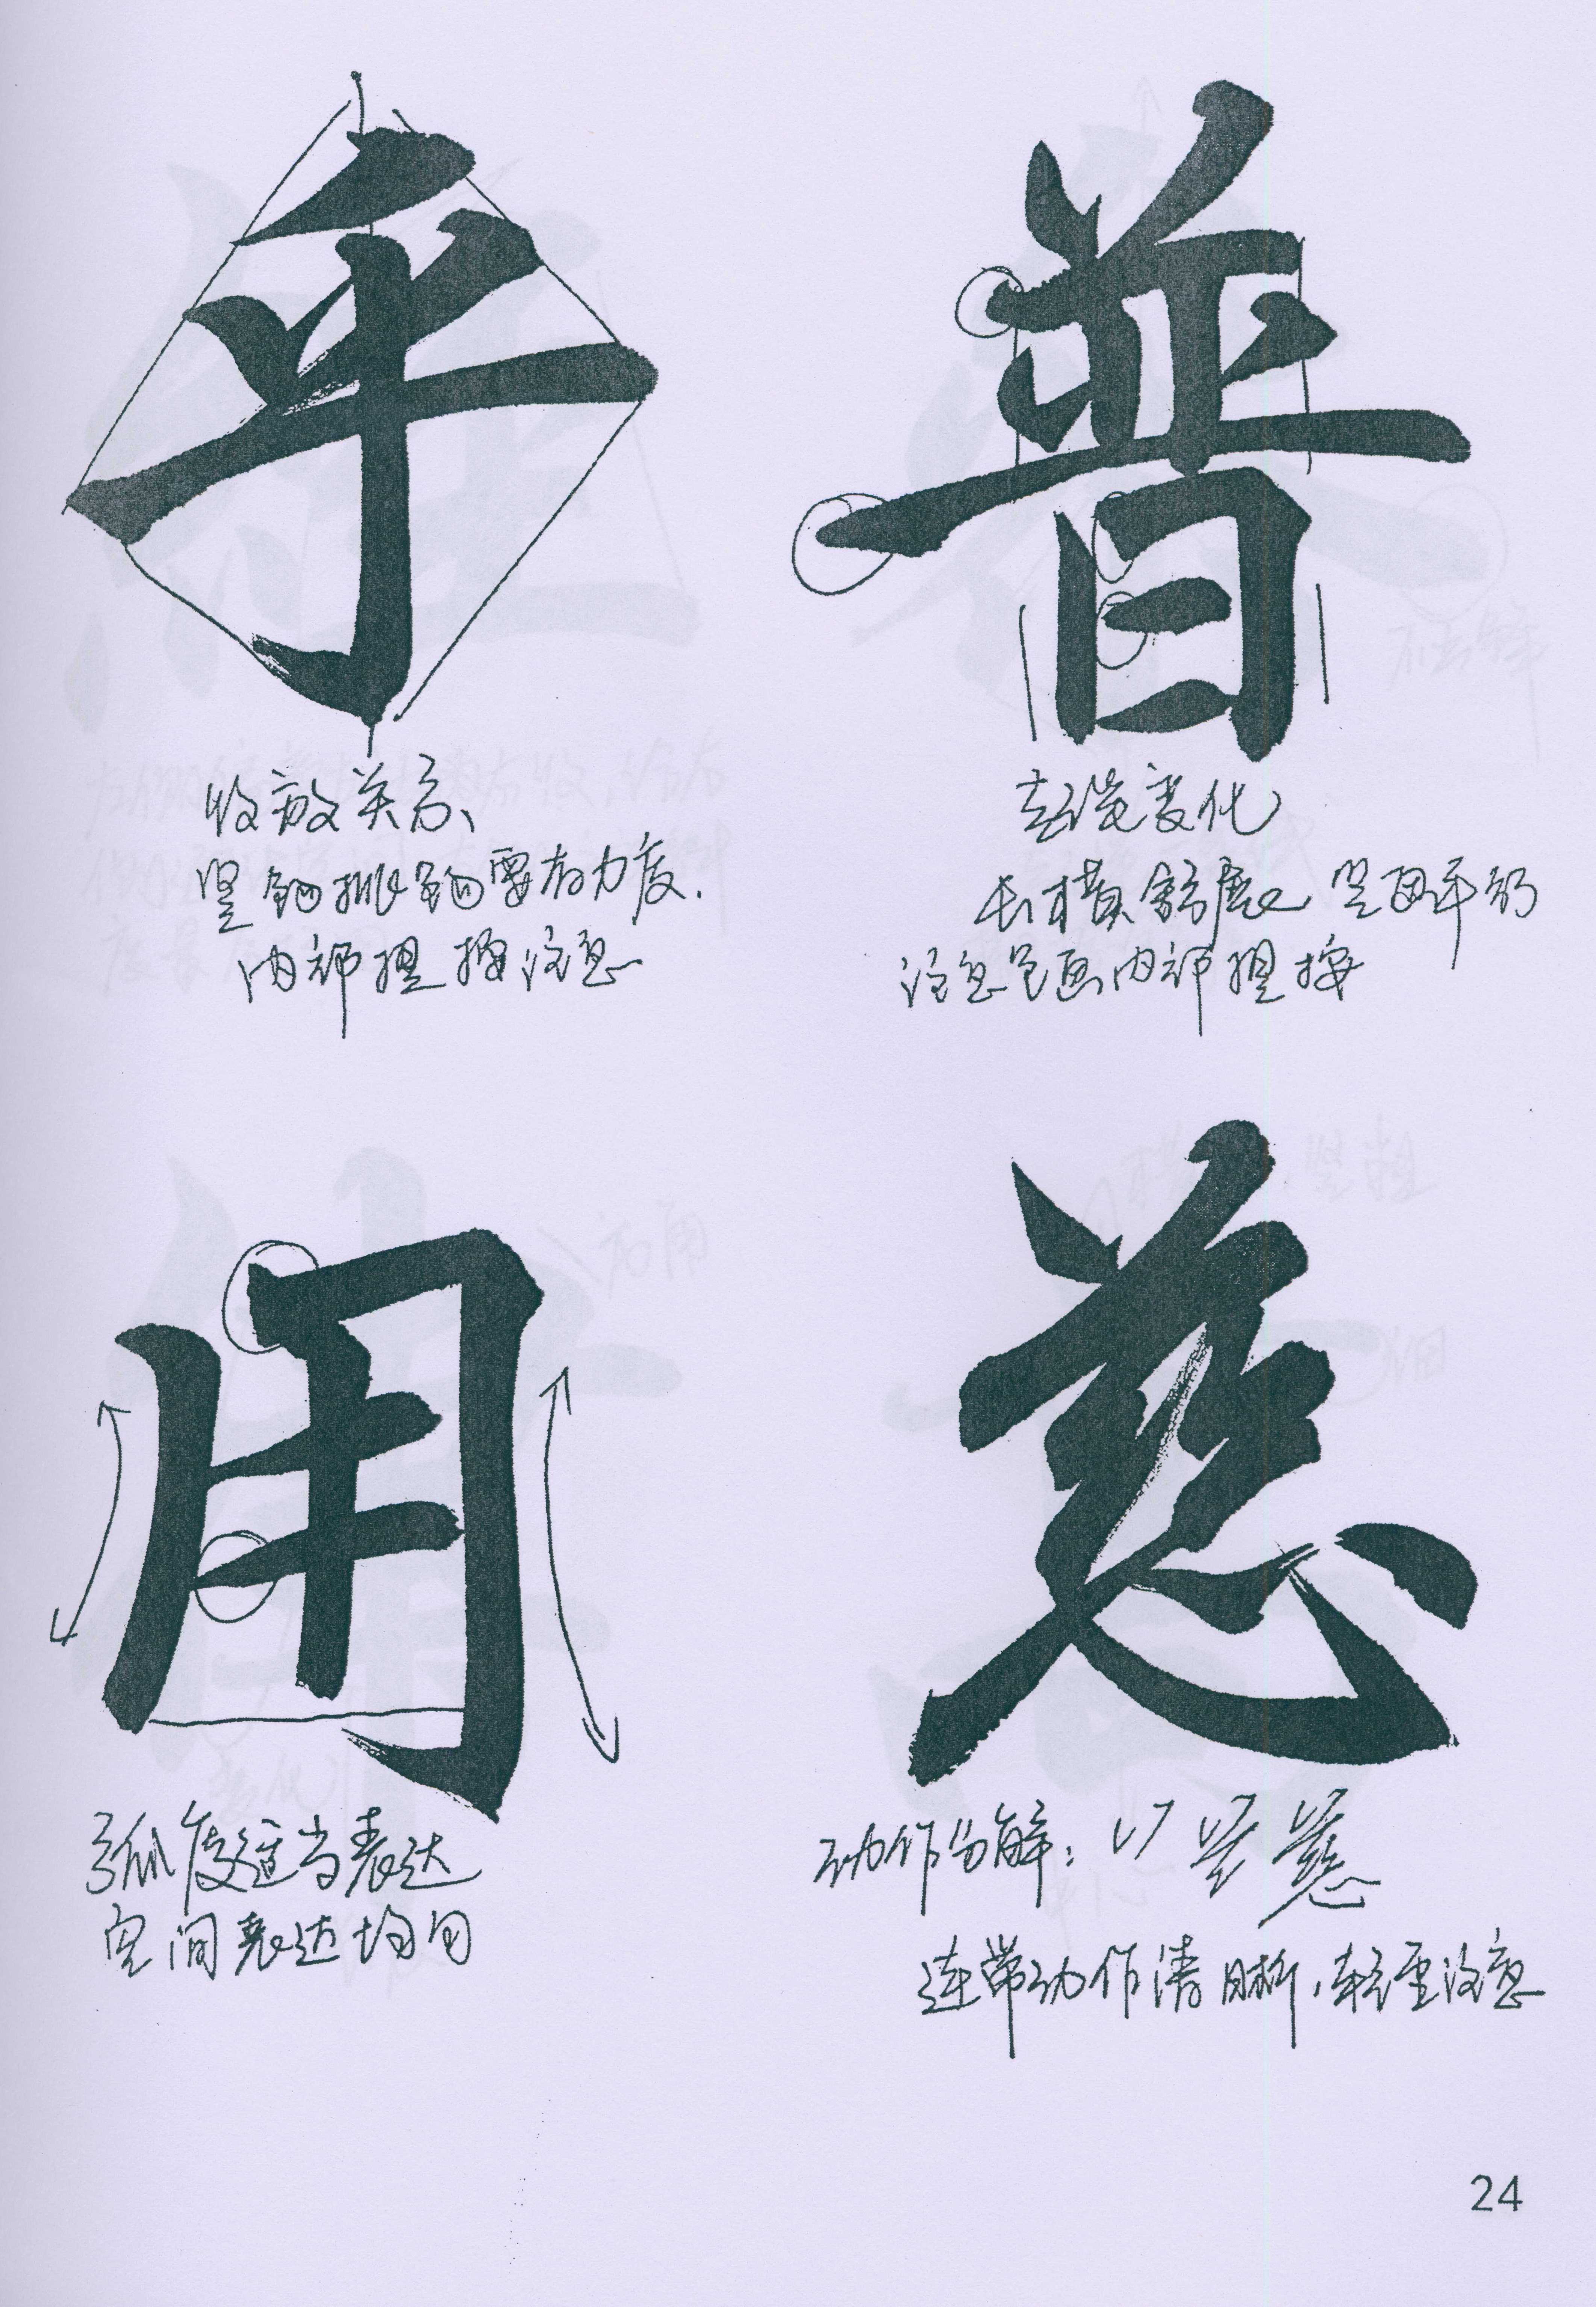 乎
收放关系
竖钩挑钩要有力度.
内部提按注意
普
起笔变化
长横舒展 竖画平行
注意笔画内部提按
用
弧度适当表达
空间表达均匀
慈
动作分解:
连带动作清晰,轻重注意
24